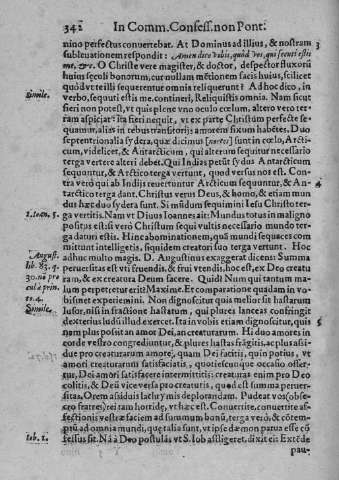 342 In Comm. Confess. non Pont:
nino perfectus conuertebat. At Dominus ad illius, & nostram 3
subleuationem respondit: Amen dico vobis, quòd vos, qui secuti estis
me, &c. O Christe vere magister, & doctor, despector fluxorũ
huius sęculi bonorum, cur nullam mẽtionem facis huius, scilicet
Simile. quòd vt te illi sequerentur omnia reliquerunt? Ad hoc dico, in
verbo, sequuti estis me, contineri, Reliquistis omnia. Nam sicut
fieri non potest, vt quis plene vno oculo cœlum, altero vero ter
ram aspiciat: Ita fieri nequit, vt ex parte Christum perfecte se
quamur, alias in rebus transitorijs amorem fixum habẽtes. Duo
septentrionalia sydera, quæ dicimus sunt in cœlo, Arcti
cum, videlicet, & Antarcticum, quì alterum sequitur necessario
terga vertere alteri debet. Qui Indias petit sydus Antarcticum
sequuntur, & Arctico terga vertunt, quod versus nos est. Con
tra verò qui ab Indijs reuertuntur Arcticum sequuntur, & An-
tarctico terga dant. Christus verus Deus, & homo, & etiam mun
dus hæc duo sydera sunt. Si mũdum sequimini Iesu Christo ter
1. Ioan. 5. ga vertitis. Nam vt Diuus Ioannes ait: Mundus totus in maligno
positus est: si verò Christum sequi vultis necessario mundo ter
ga daturi estis. Hinc abominationem, quis mundi sequaces com
mittunt intelligetis, siquidem creatori suo terga vertunt. Hoc
August. adhuc multo magis. D. Augustinus exaggerat dicens: Summa
lib. 83. q. peruersitas est vti fruendis, & frui vtendis, hoc est, ex Deo creatu
30. ram, & ex creatura Deum facere. Quid? Num qui tantum ma-
lum perpetret erit? Maxime. Et comparatione quadam in vo-
10. 4. bis met experiemini. Non dignoscitur quis melior sit hastarum
Simile. lusor, nisi in fractione hastarum, qui plures lanceas confringit
dexterius ludis illud exercet. Ita in vobis etiam dignoscitur, quis 5
nam plus possit an amor Dei, an creaturarum. Hi duo amores in
corde vestro congrediuntur, & plures hastas frãgitis, ac plus assi-
due pro creaturarum amore, quam Dei facitis, quin potius, vt
amori creaturarum satisfacitis, quotiescunque occasio offer-
tur, Dei amori satisfacere intermittitis: creaturas enim pro Deo
colitis, & Deũ vice versa pro creatutis, quod est summa peruer-
sitas. O rem assiduis lachrymis deplorandam. Pudeat vos (obse-
cro fratres) rei tam horridę, vt hæc est. Conuertite, conuertite af-
fectionis vestræ faciem ad summum bonũ, terga verò, & cõtem-
ptũ ad omnia mundi, quę talia sunt, vt ipse dæmon parua esse cõ
Iob. 2. fessus sit. Nã à Deo postulãs vt S. Iob affligeret, dixit ei: Extẽde
pau-